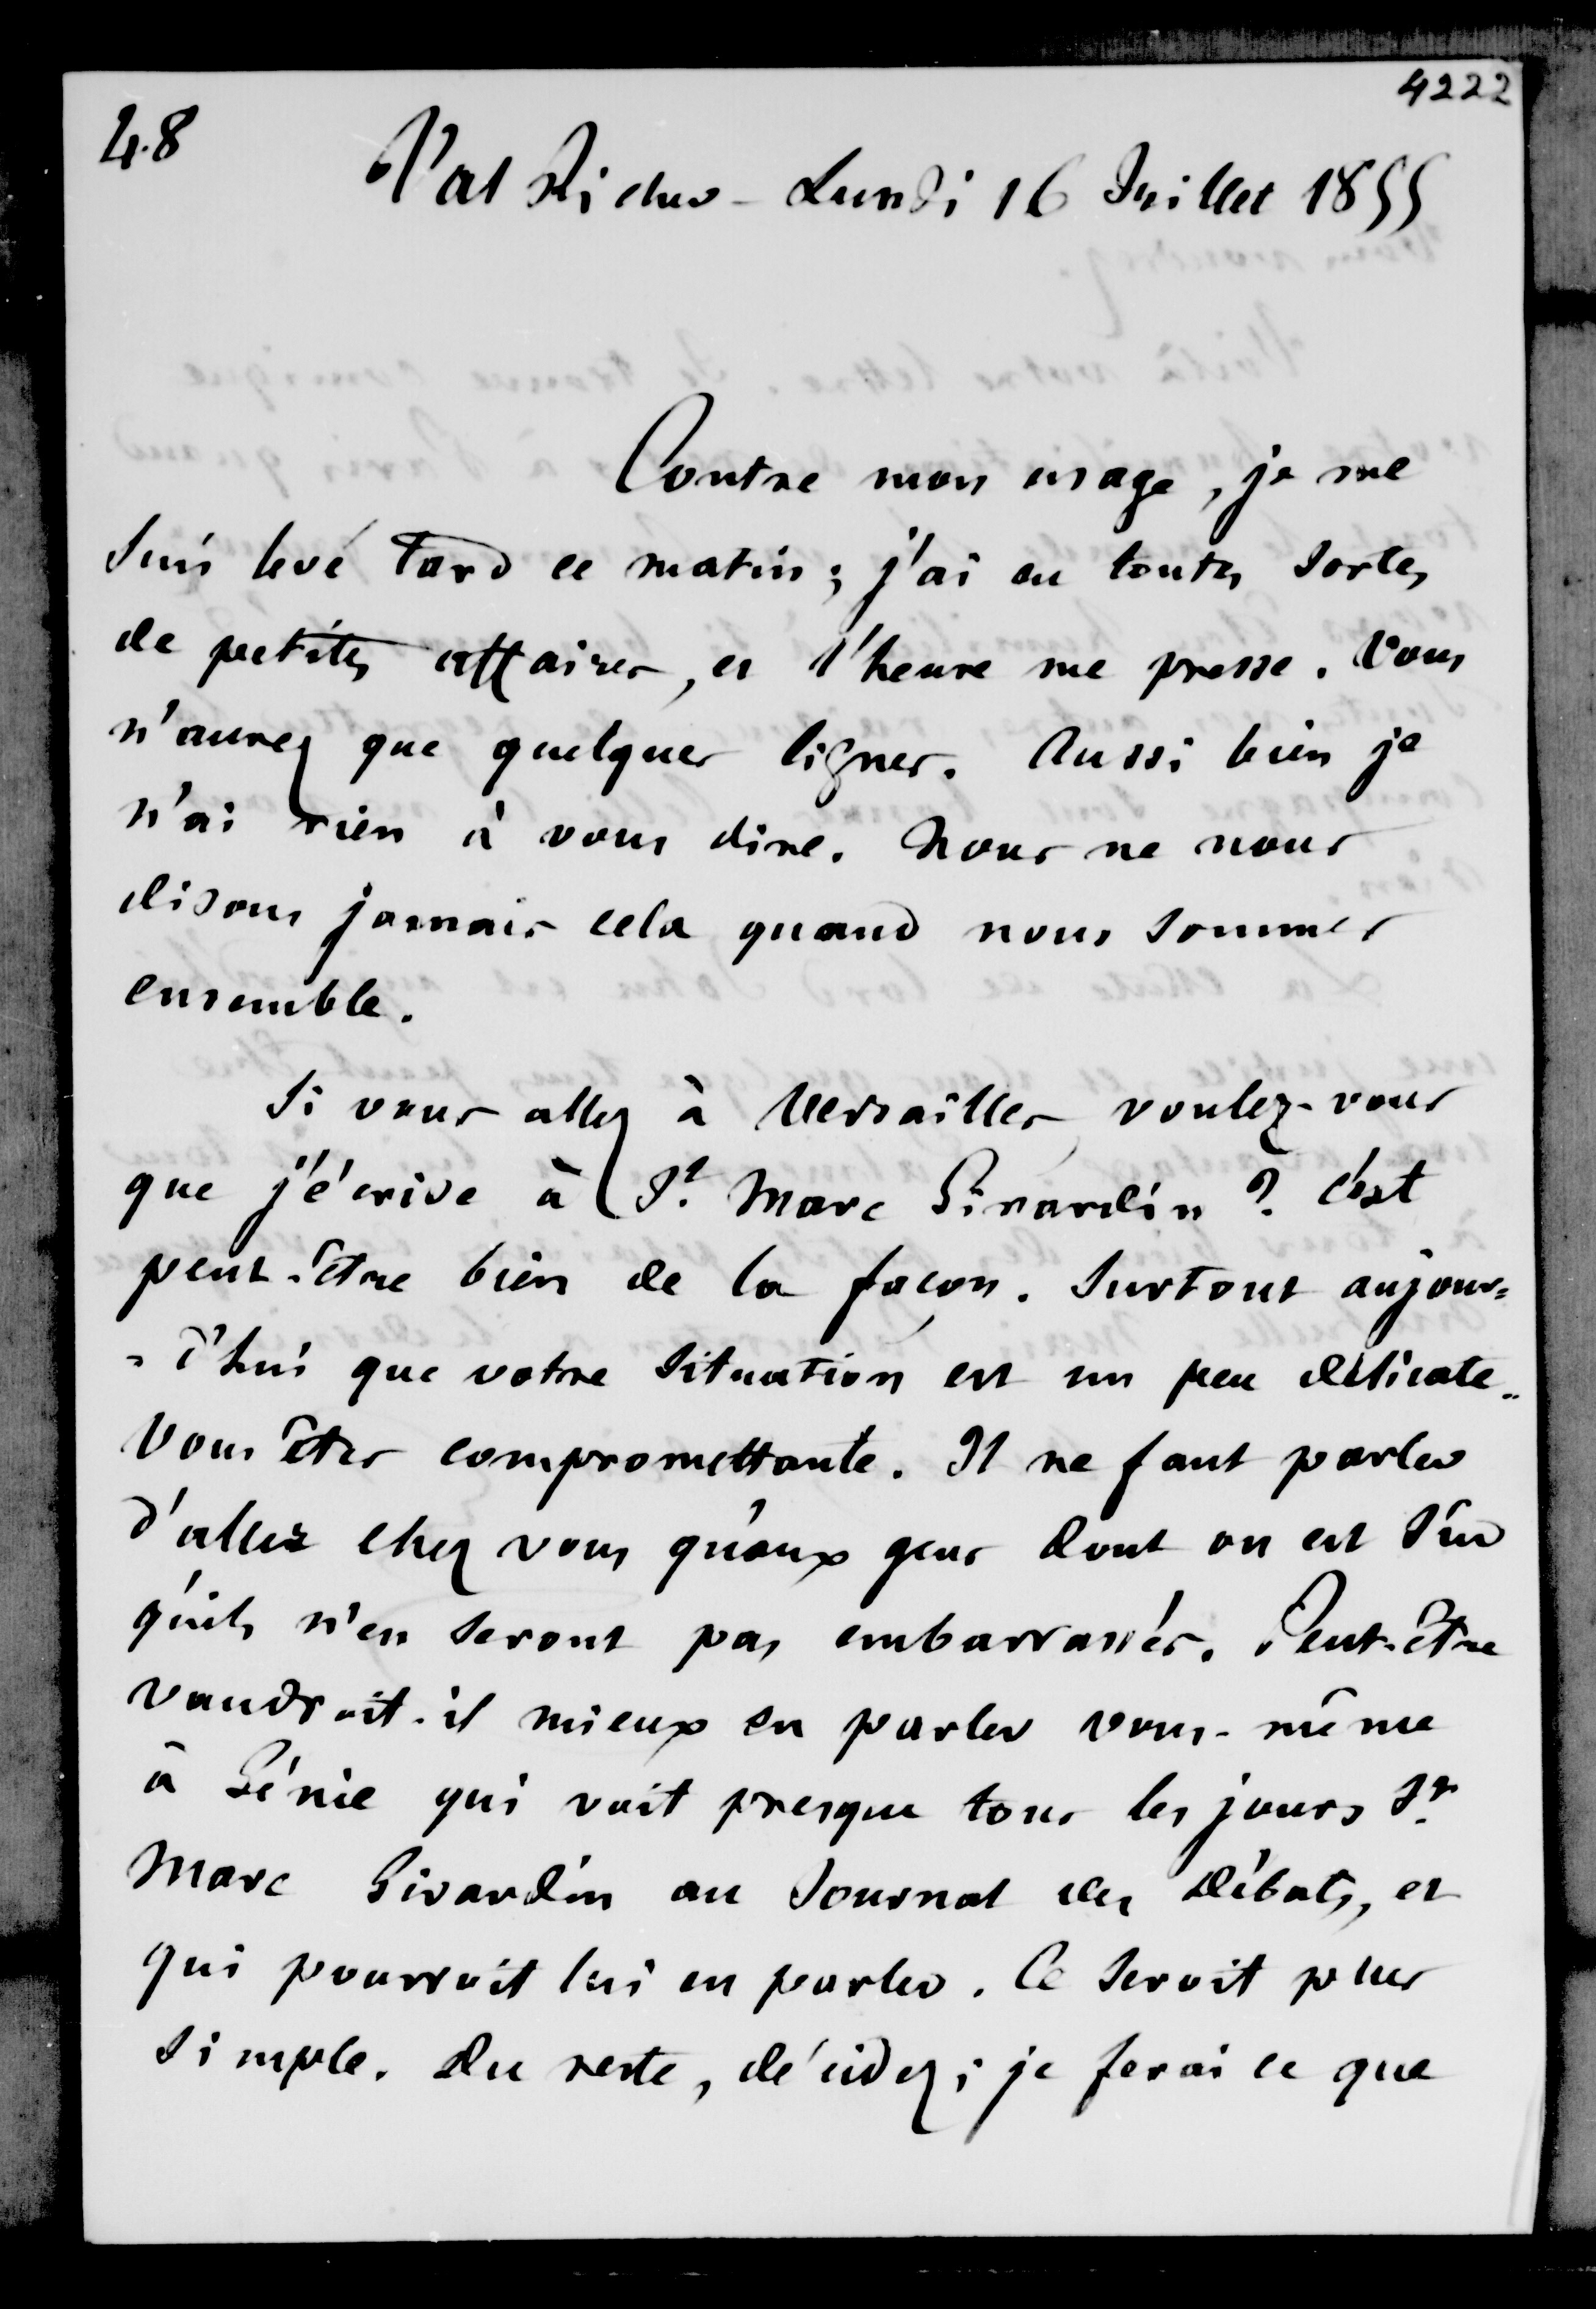 4222
48
Val Richer - Lundi 16 Juillet 1855
Contre mon usage, je me
suis levé tard ce matin ; j'ai eu toutes sortes
de petites affaires, et l'heure me presse. Vous
n'aurez que quelques lignes. Aussi bien je
n'ai rien à vous dire. Nous ne nous
disons jamais cela quand nous sommes
ensemble.
Si vous allez à Versailles, voulez-vous
que j'écrive à St. Marc Girardin ? C'est
peut-être bien de la façon. Surtout aujour=
=d'hui que votre situation est un peu délicate.
Vous êtes compromettante. Il ne faut parler
d'aller chez vous qu'aux gens dont on est sûr
qu'ils n'en seront pas embarrassés. Peut-être
vaudroit-il mieux en parler vous-même
à Génie qui voit presque tous les jours St.
Marc Girardin au Journal des Débats, et
qui pourroit lui en parler. Ce seroit plus
simple. Du reste, décidez ; je ferai ce que